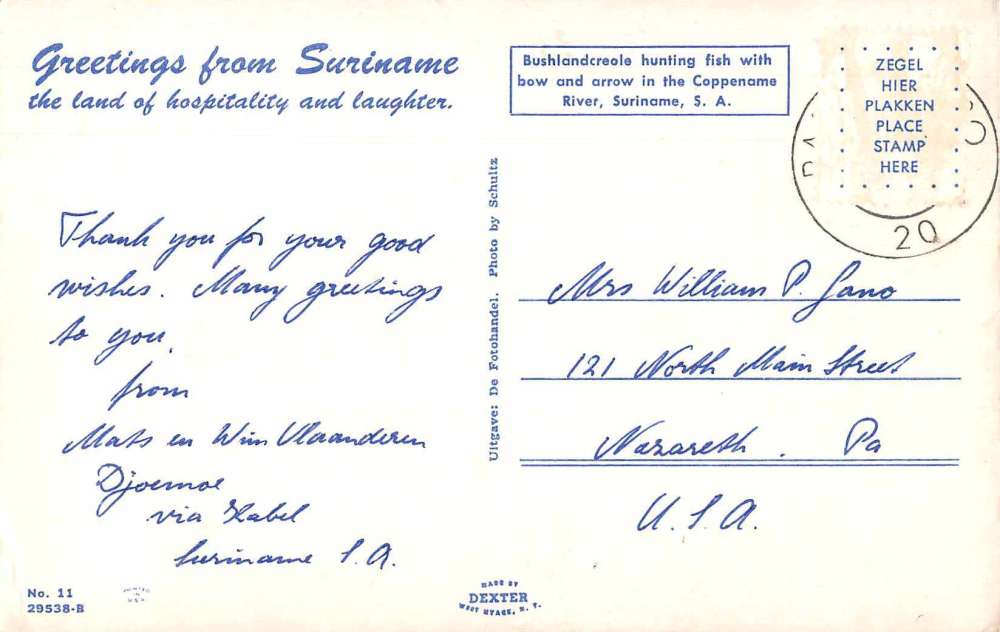 Greetings from Suriname
the land of hospitality and laughter.
Bushlandcreole hunting fish with
bow and arrow in the Coppename
River, Suriname, S. A.
ZEGEL
HIER
PLAKKEN
PLACE
STAMP
HERE
20
Uitgave: De Fotohandel. Photo by Schultz
Thank you for your good
wishes. Many greetings
to you.
from
Mats en Wim Vlaanderen
Djoemoe
via Kabel
Suriname S.A.
Mrs William P. Gano
121 North Main Street
Nazareth. Pa
U.S.A.
No. 11
29538-B
PRINTED
IN
U.S.A.
MADE BY
DEXTER
WEST NYACK, N. Y.